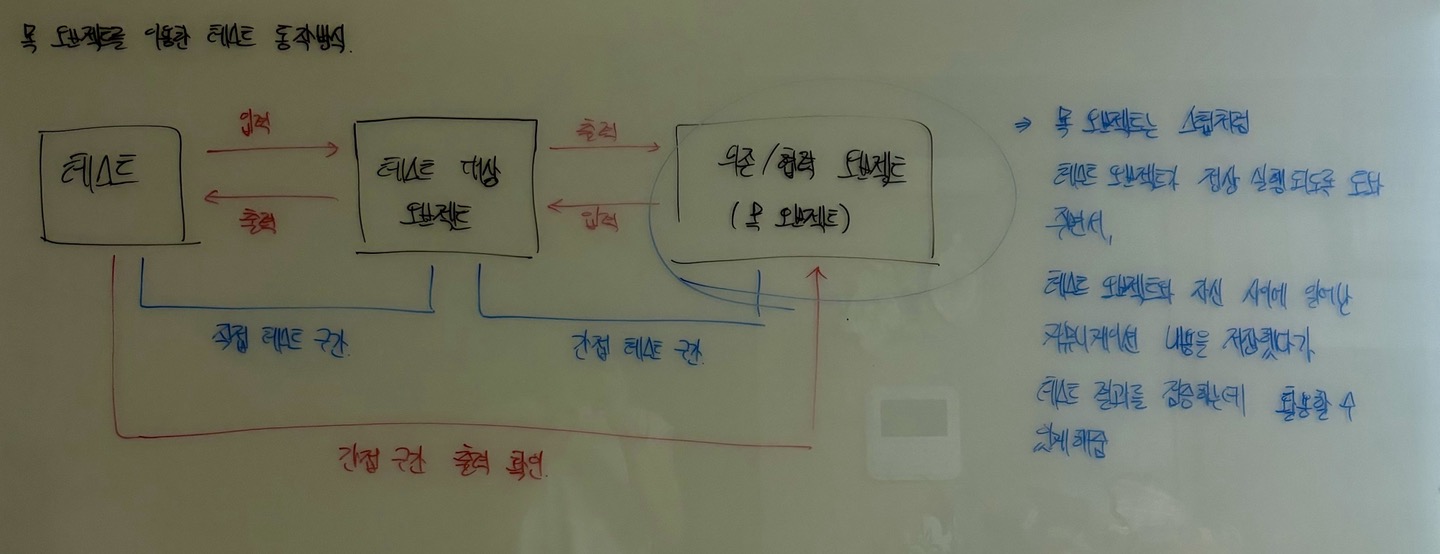 목 오브젝트를 이용한 테스트 동작방식.
입력
출력
테스트
테스트 대상
오브젝트
의존/협력 오브젝트
(목 오브젝트)
출력
입력
직접 테스트 구간.
간접 테스트 구간.
간접 구간 출력 확인.
⇒ 목 오브젝트는 스텁처럼
테스트 오브젝트가 정상 실행되도록 도와
주면서,
테스트 오브젝트와 자신 사이에 일어난
커뮤니케이션 내용을 저장했다가
테스트 결과를 검증하는데 활용할 수
있게 해줌